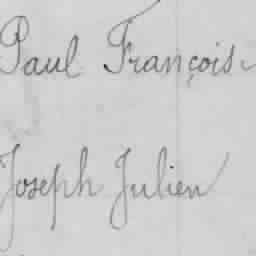 Paul François
Joseph Julien